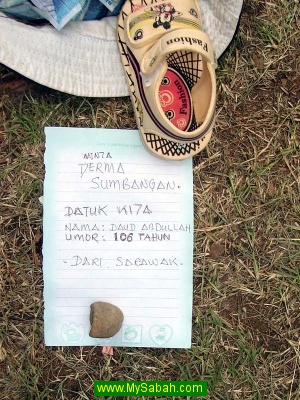 Fashion
Fashion
MINTA
DERMA
SUMBANGAN.
DATUK KITA
NAMA: DAUD ABDULLAH
UMOR: 106 TAHUN
- DARI SARAWAK -
www.MySabah.com